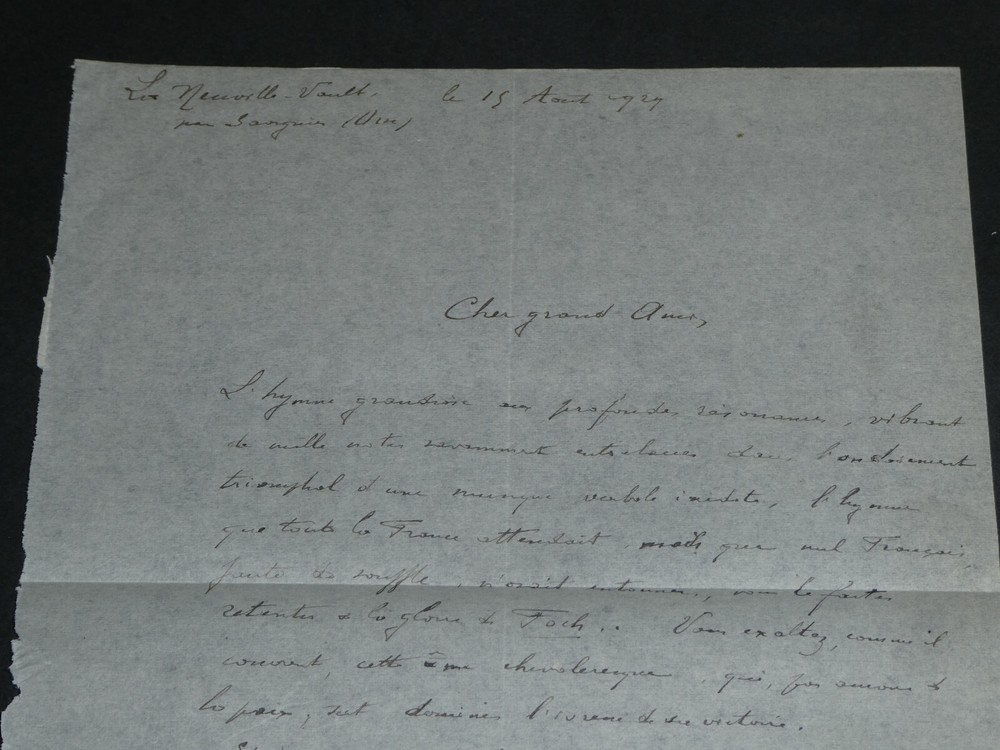 La Neuville-Vault, le 15 Aout 1929
par Savignies (Oise)
Cher grand Ami,
L'hymne grandiose aux profondes résonances, vibrant
de mille notes savamment entrelacées dans l'ondoiement
triomphal d'une musique verbale inédite, l'hymne
que toute la France attendait, mais que nul Français,
faute de souffle, n'osait entonner, vous le faites
retentir à la gloire de Foch.. Vous exaltez, comme il
convient, cette âme chevaleresque, qui, par amour de
la paix, sut dominer l'ivresse de sa victoire.